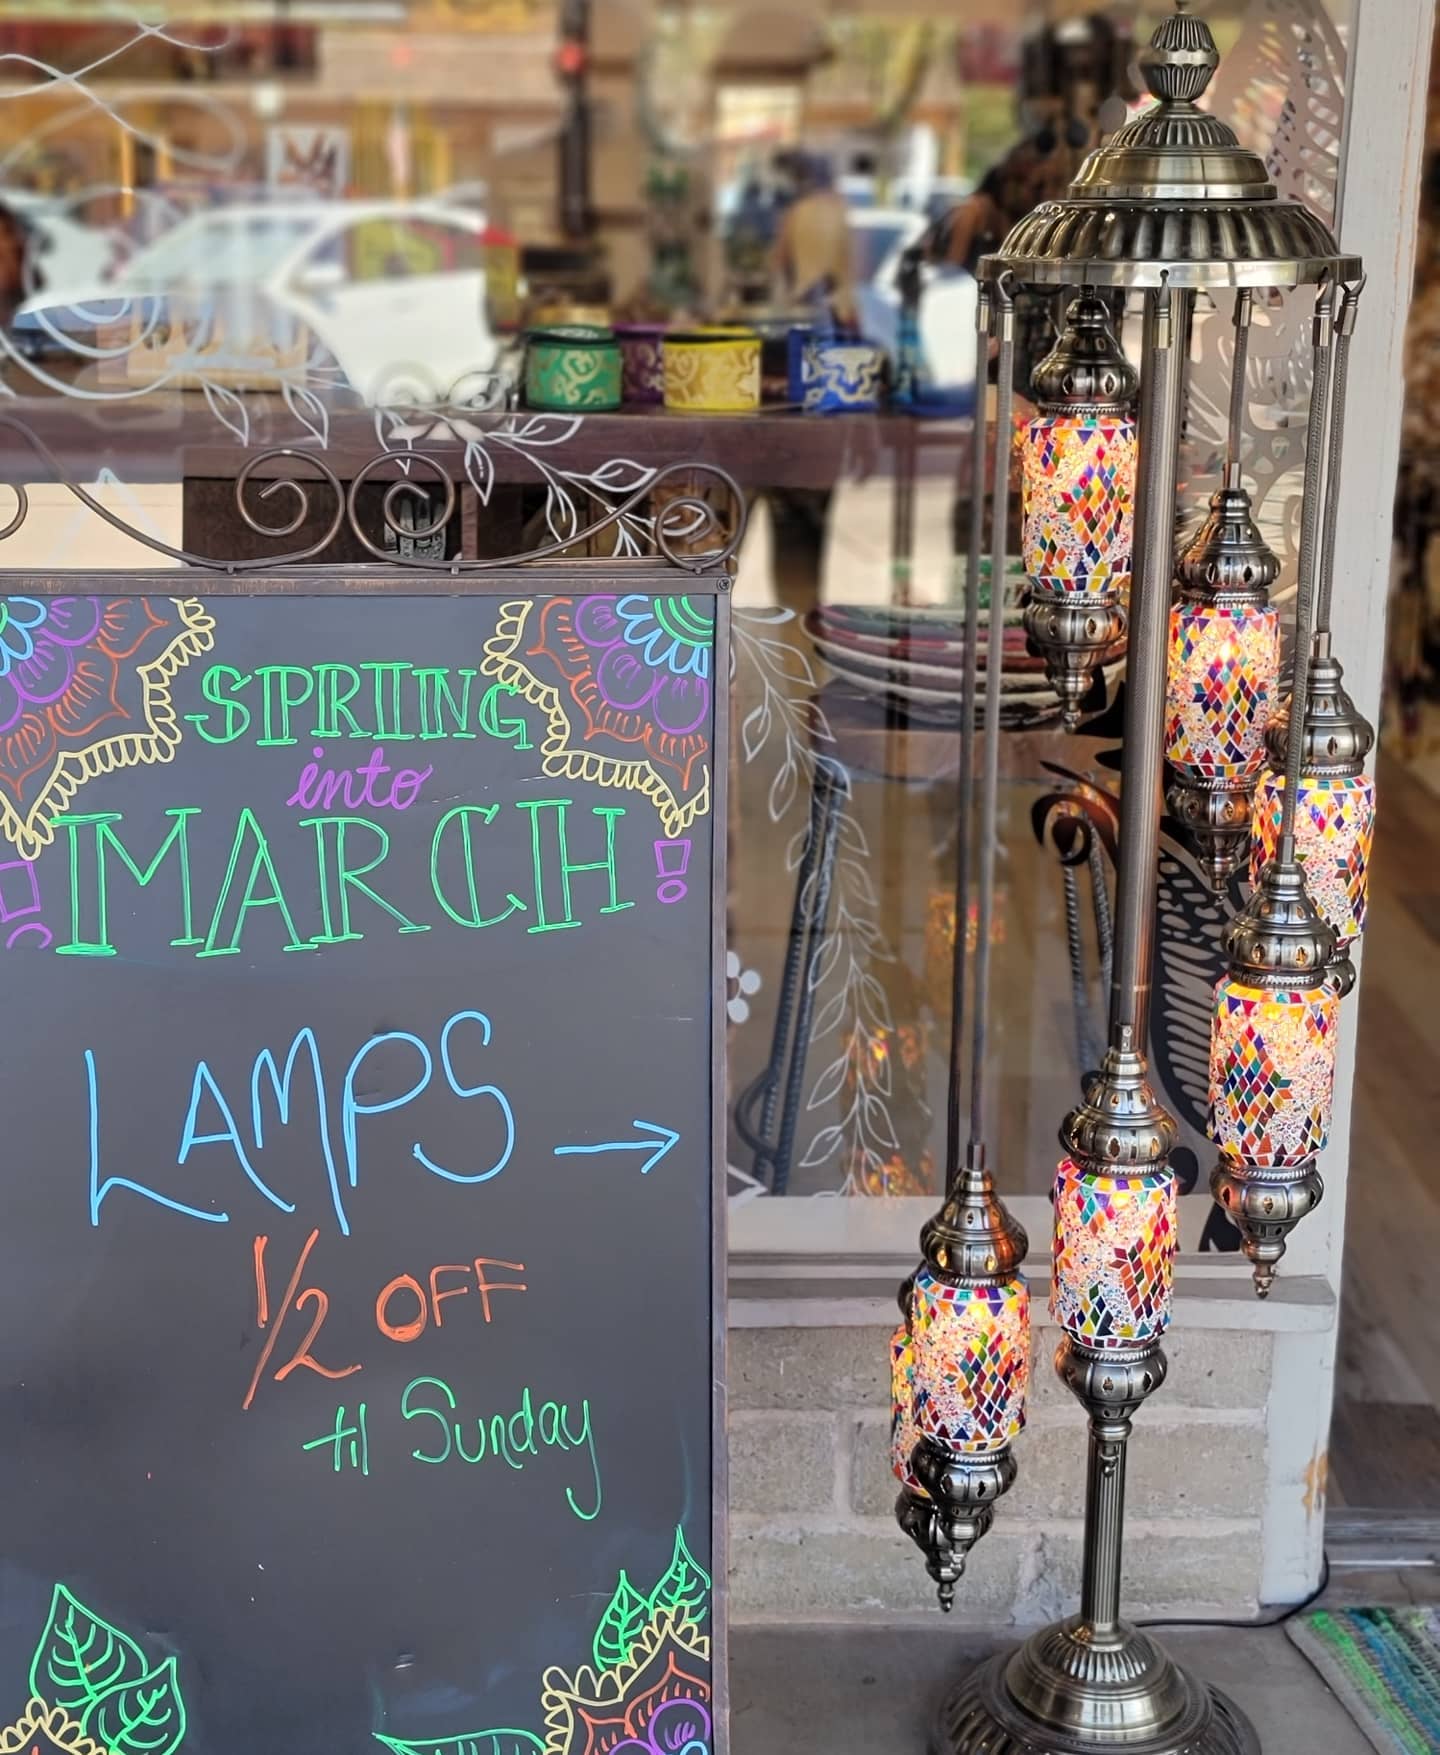 SPRIING
into
! MARCH !
LAMPS →
1/2 OFF
til Sunday